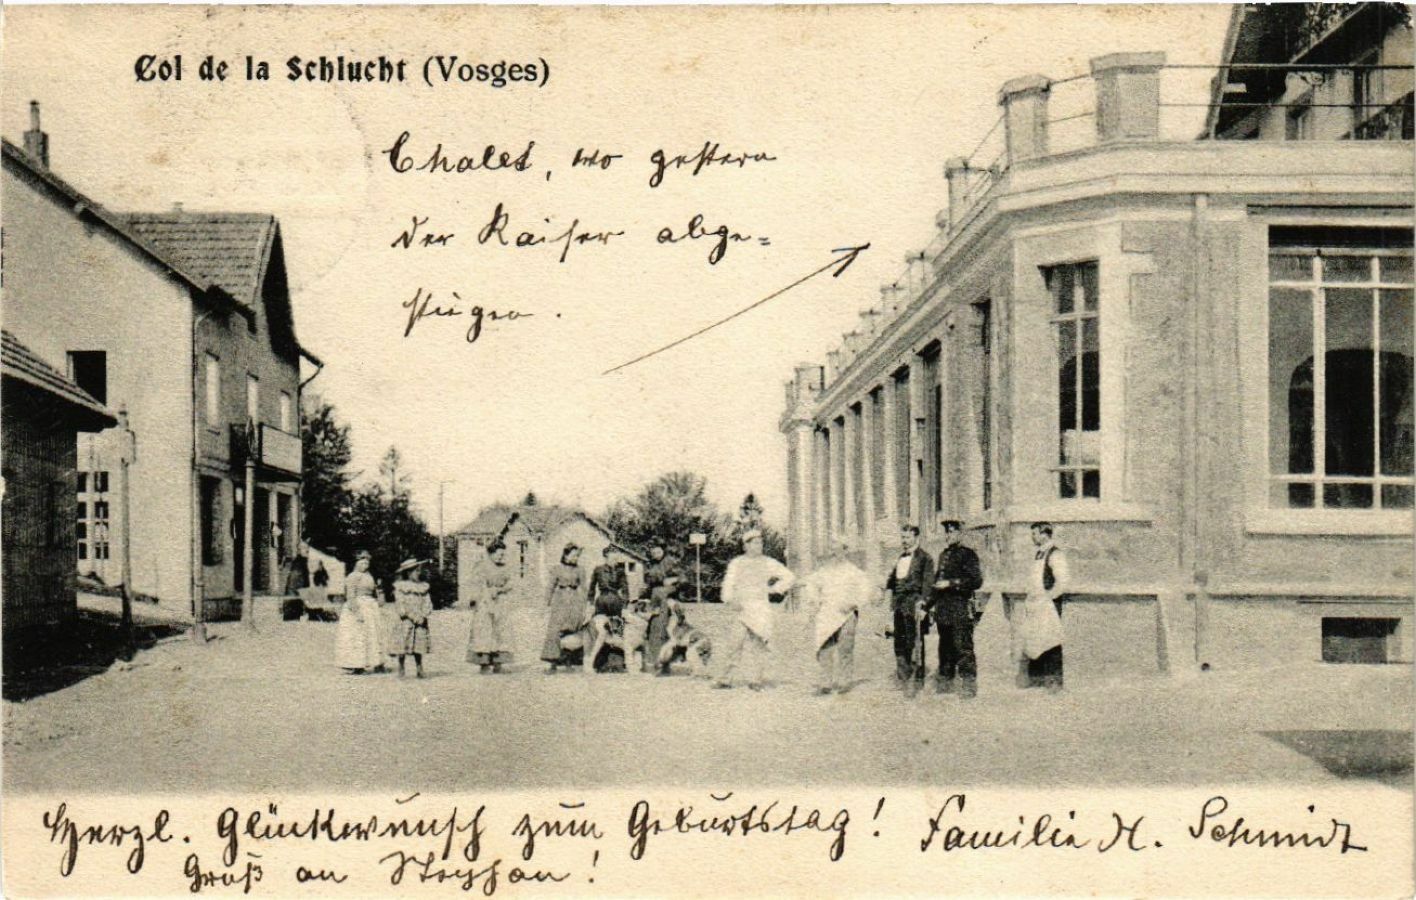 Col de la Schlucht (Vosges)
Chalet, wo gestern
der Kaiser abge=
stiegen.
Herzl. Glückwunsch zum Geburtstag! Familie H. Schmidt
Gruß an Stephan!